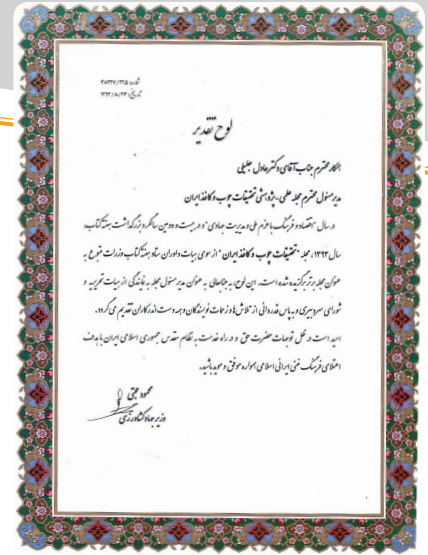 شماره: ۴۸۳۲۷/۲۲۵
تاریخ: ۱۳۹۳/۸/۲۴
لوح تقدیر
همکار محترم جناب آقای دکتر عادل جلیلی
مدیر مسئول محترم مجله علمی - پژوهشی تحقیقات چوب و کاغذ ایران
در سال "اقتصاد و فرهنگ با عزم ملی و مدیریت جهادی" و در بیست و دومین سالگرد بزرگداشت هفته کتاب،
سال ۱۳۹۳، مجله "تحقیقات چوب و کاغذ ایران" از سوی هیات داوران ستاد هفته کتاب وزارت متبوع به
عنوان مجله برتر برگزیده شده است. این لوح، به جنابعالی به عنوان مدیر مسئول مجله به نمایندگی از هیات تحریریه و
شورای سردبیری و به پاس قدردانی از تلاش‌ها و زحمات نویسندگان و همه دست اندرکاران تقدیم می گردد.
امید است در ظل توجهات حضرت حق و در راه خدمت به نظام مقدس جمهوری اسلامی ایران با هدف
اعتلای فرهنگ غنی ایرانی اسلامی همواره موفق و موید باشید.
محمود حجتی
وزیر جهاد کشاورزی